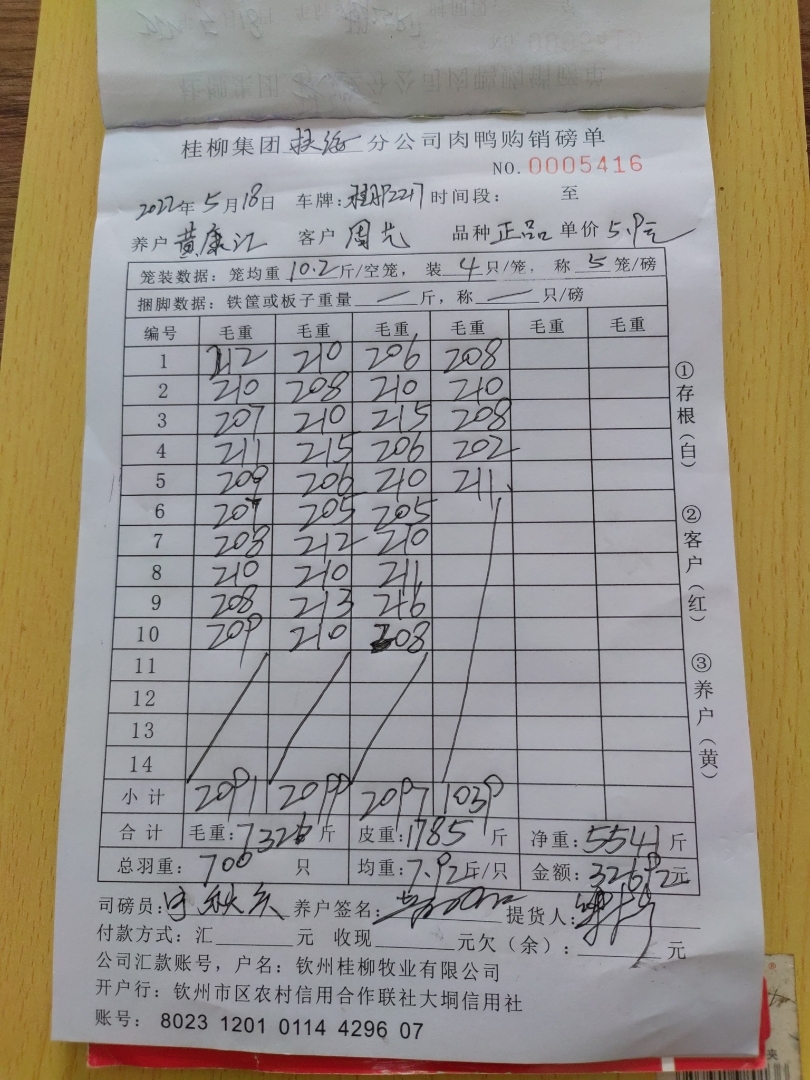 桂柳集团扶绥分公司肉鸭购销磅单
NO.0005416
2022年5月18日 车牌: 时间段: 至
养户 黄康江 客户 周光 品种 正品 单价 5.9元
笼装数据: 笼均重 10.2 斤/空笼, 装 4 只/笼, 称 5 笼/磅
捆脚数据: 铁筐或板子重量 — 斤, 称 — 只/磅
编号 毛重 毛重 毛重 毛重 毛重 毛重
1 212 210 206 208
2 210 208 210 210
3 207 210 215 208
4 211 215 206 202
5 209 206 210 211
6 207 205 205
7 208 212 210
8 210 210 211
9 208 213 216
10 209 210 208
11
12
13
14
小计 2091 2099 2097 1039
合计 毛重: 7326 斤 皮重: 1785 斤 净重: 5541 斤
总羽重: 700 只 均重: 7.92 斤/只 金额: 32692 元
司磅员: 养户签名: 提货人:
付款方式: 汇 元 收现 元欠(余): 元
公司汇款账号, 户名: 钦州桂柳牧业有限公司
开户行: 钦州市区农村信用合作联社大垌信用社
账号: 8023 1201 0114 4296 07
①存根(白)
②客户(红)
③养户(黄)